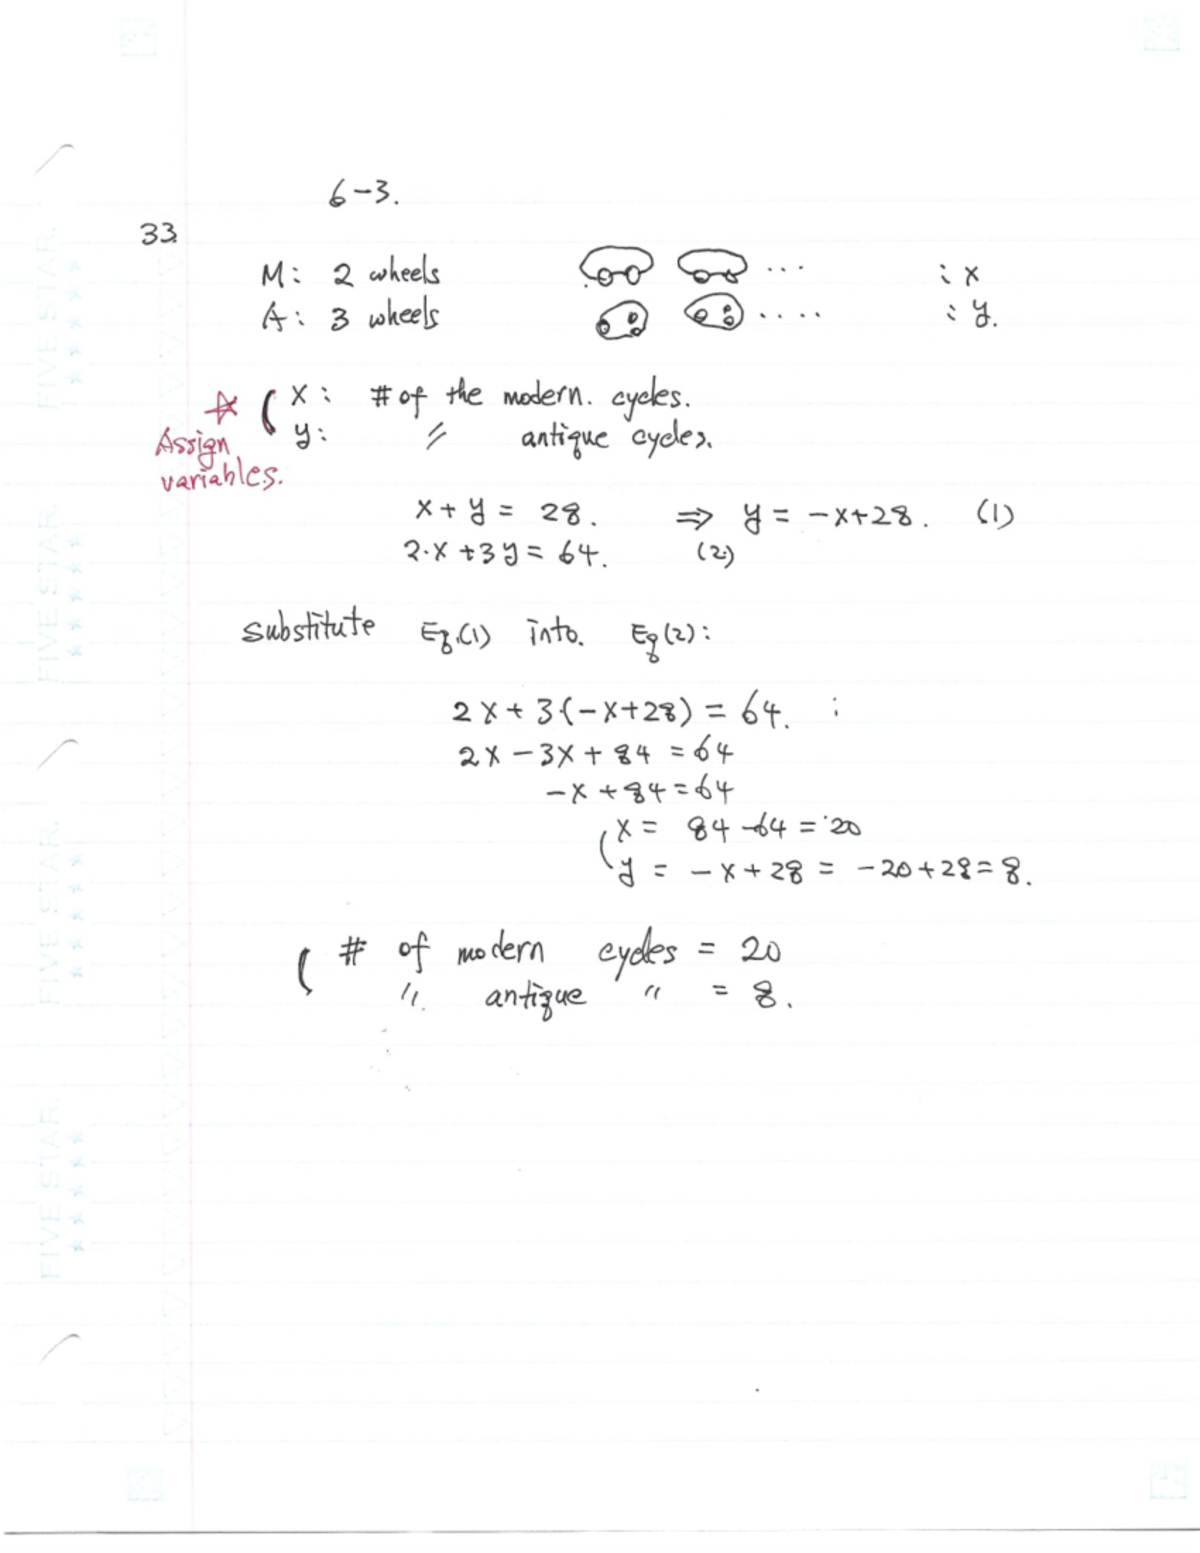 6-3.
33.
M: 2 wheels ... : x
A: 3 wheels .... : y.
x: # of the modern. cycles.
y: 〃 antique cycles.
Assign
variables.
x + y = 28. ⇒ y = -x+28. (1)
2·x + 3y = 64. (2)
Substitute Eq.(1) into. Eq(2):
2x + 3(-x+28) = 64. :
2x - 3x + 84 = 64
-x + 84 = 64
x = 84 - 64 = 20
y = -x + 28 = -20 + 28 = 8.
# of modern cycles = 20
〃 antique 〃 = 8.
FIVE STAR.
FIVE STAR.
FIVE STAR.
FIVE STAR.